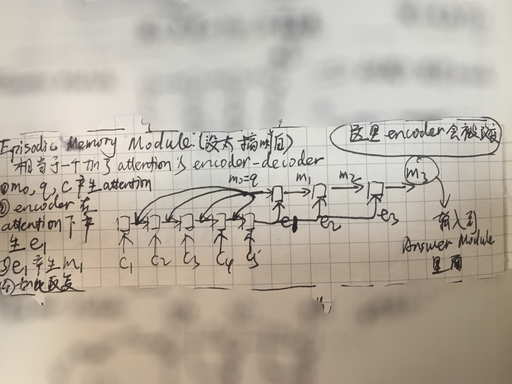 Episodic Memory Module:(没太搞明白)
相当于一个加了attention的encoder-decoder
①m₀, q, c产生attention
②encoder在
attention下产
生e₁
③e₁产生m₁
④如此反复
m₀=q m₁ m₂ m₃
e₁ e₂ e₃
C₁ C₂ C₃ C₄ C₅
这里encoder会被
输入到
Answer Module
里面